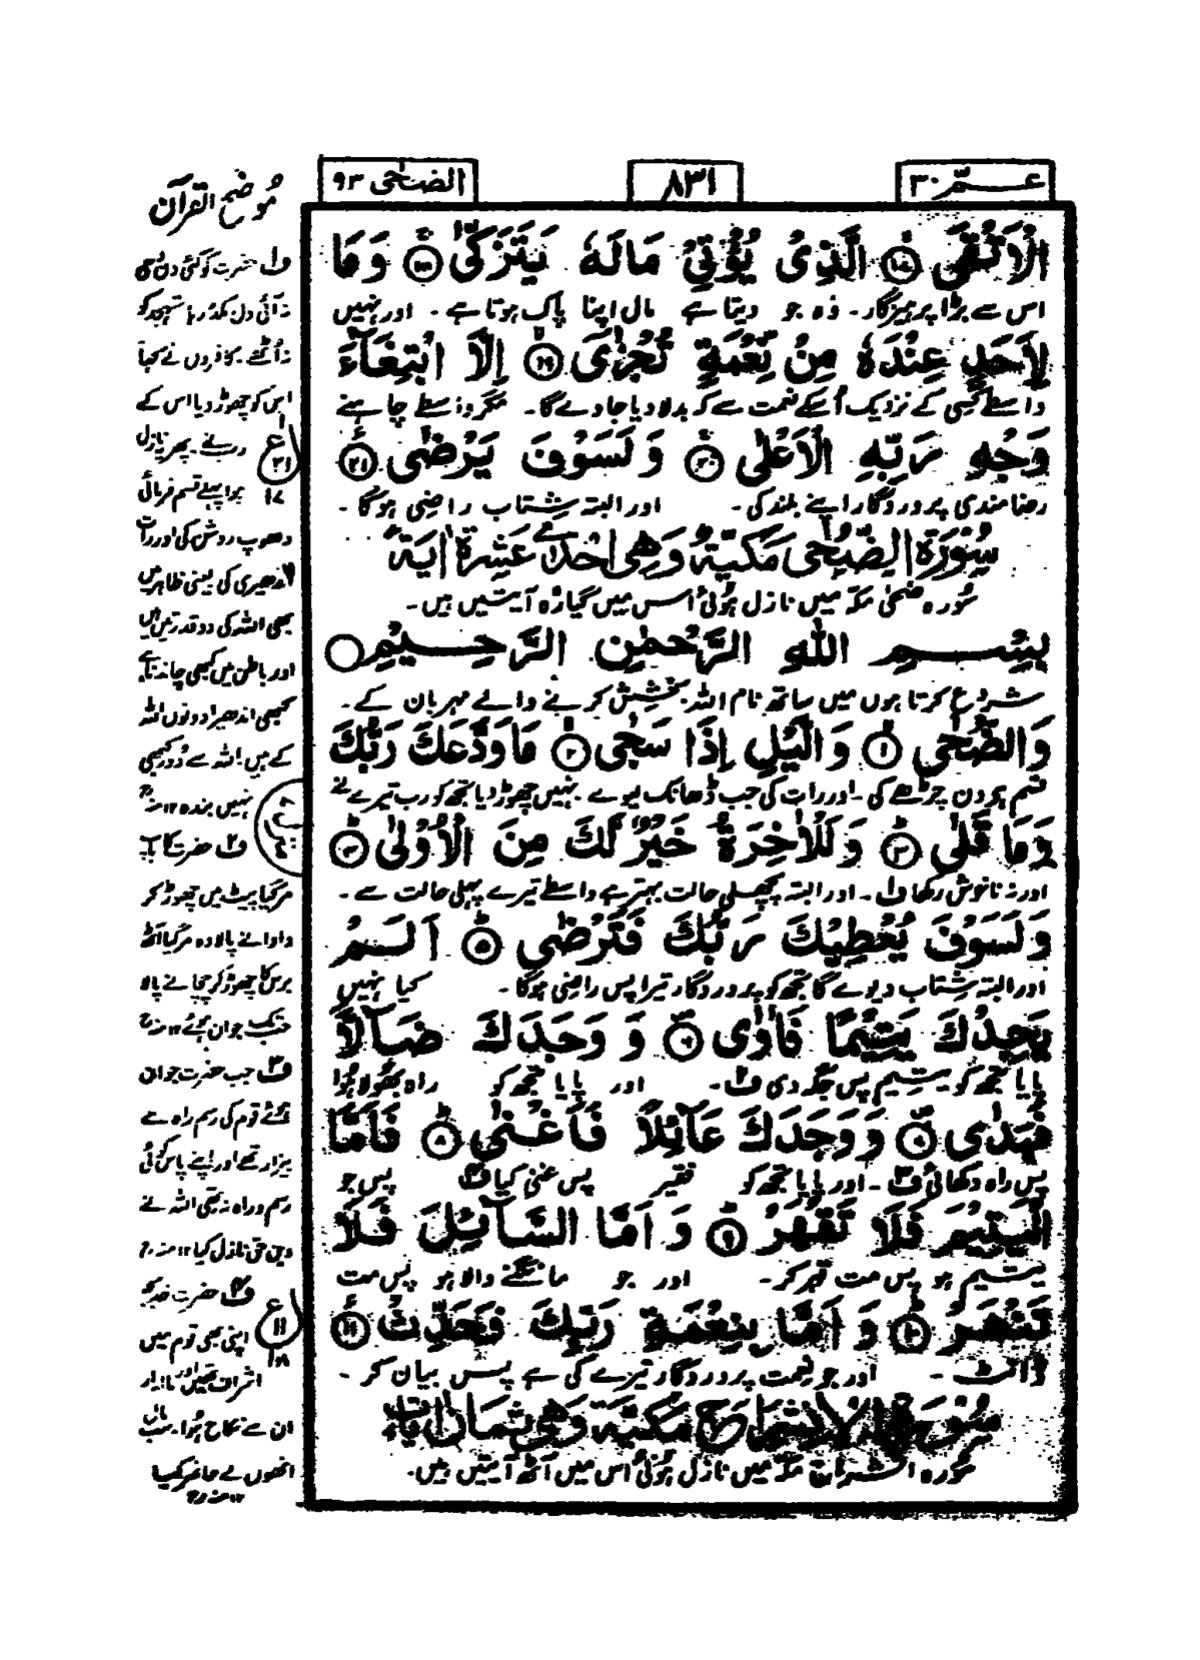 عمّ ۳۰
۸۳۱
الضحٰی ۹۳
الْاَتْقَى ۙ‏﴿۱۷﴾ الَّذِىْ يُؤْتِىْ مَالَهٗ يَتَزَكّٰى ۚ‏﴿۱۸﴾ وَمَا
اس سے بڑا پرہیزگار۔ وہ جو دیتا ہے مال اپنا پاک ہوتا ہے۔ اور نہیں
لِاَحَدٍ عِنْدَهٗ مِنْ نِّعْمَةٍ تُجْزٰٓى ۙ‏﴿۱۹﴾ اِلَّا ابْتِغَآءَ
واسطے کسی کے نزدیک اُسکے نعمت سے کہ بدلا دیا جاوے گا۔ مگر واسطے چاہنے
وَجْهِ رَبِّهِ الْاَعْلٰى ۚ‏﴿۲۰﴾ وَلَسَوْفَ يَرْضٰى ﴿۲۱﴾
رضامندی پروردگار اپنے بلند کی۔ اور البتہ شتاب راضی ہوگا۔
سُوْرَةُ الضُّحٰى مَكِّيَّةٌ وَّهِىَ اِحْدٰى عَشَرَةَ اٰيَةً
سُورہ ضحٰی مکہ میں نازل ہُوئی اس میں گیارہ آیتیں ہیں۔
بِسْمِ اللّٰهِ الرَّحْمٰنِ الرَّحِيْمِ
شروع کرتا ہوں میں ساتھ نام اللہ بخشش کرنے والے مہربان کے۔
وَالضُّحٰى ۙ‏﴿۱﴾ وَالَّيْلِ اِذَا سَجٰى ۙ‏﴿۲﴾ مَا وَدَّعَكَ رَبُّكَ
قسم ہے دن چڑھے کی۔ اور رات کی جب ڈھانک لیوے۔ نہیں چھوڑ دیا تجھ کو رب تیرے نے
وَمَا قَلٰى ؕ‏﴿۳﴾ وَلَلْاٰخِرَةُ خَيْرٌ لَّكَ مِنَ الْاُوْلٰى ؕ‏﴿۴﴾
اور نہ ناخوش رکھا ف۱۔ اور البتہ پچھلی حالت بہتر ہے واسطے تیرے پہلی حالت سے۔
وَلَسَوْفَ يُعْطِيْكَ رَبُّكَ فَتَرْضٰى ؕ‏﴿۵﴾ اَلَمْ
اور البتہ شتاب دیوے گا تجھ کو پروردگار تیرا پس راضی ہوگا۔ کیا نہیں
يَجِدْكَ يَتِيْمًا فَاٰوٰى ۪‏﴿۶﴾ وَوَجَدَكَ ضَآلًّا
پایا تجھ کو یتیم پس جگہ دی ف۲۔ اور پایا تجھ کو راہ بھُولا ہُوا
فَهَدٰى ۪‏﴿۷﴾ وَوَجَدَكَ عَآئِلًا فَاَغْنٰى ؕ‏﴿۸﴾ فَاَمَّا
پس راہ دکھائی ف۳۔ اور پایا تجھ کو فقیر پس غنی کیا ف۴ پس جو
الْيَتِيْمَ فَلَا تَقْهَرْ ؕ‏﴿۹﴾ وَاَمَّا السَّآئِلَ فَلَا
یتیم ہو پس مت قہر کر۔ اور جو مانگنے والا ہو پس مت
تَنْهَرْ ؕ‏﴿۱۰﴾ وَاَمَّا بِنِعْمَةِ رَبِّكَ فَحَدِّثْ ﴿۱۱﴾
ڈانٹ۔ اور جو نعمت پروردگار تیرے کی ہے پس بیان کر۔
مَكِّيَّةٌ وَّهِىَ ثَمَانُ اٰيَاتٍ
سُورہ انشراح مکہ میں نازل ہُوئی اس میں آٹھ آیتیں ہیں۔
مُوضح القرآن
ف۱ حضرت کو کئی دن وحی
نہ آئی دل مکدر رہا تہجد کو
نہ اُٹھے۔ کافروں نے کہا
اس کو چھوڑ دیا اس کے
رب نے۔ پھر یہ نازل
ہوا پہلے قسم فرمائی
دھوپ روشن کی اور رات
اندھیری کی یعنی ظاہر میں
بھی اللہ کی دو قدرتیں ہیں
اور باطن میں کبھی چاندنا ہے
کبھی اندھیرا دونوں اللہ
کے ہیں اللہ سے دُور کبھی
نہیں بندہ ۱۲ منہ رح
ف۲ حضرت کا باپ
مر گیا پیٹ میں چھوڑ کر
دادا نے پالا وہ مر گیا آٹھ
برس کا چھوڑ کر چچا نے پالا
جب تک جوان ہوئے ۱۲ منہ رح
ف۳ جب حضرت جوان
ہوئے قوم کی رسم راہ سے
بیزار تھے اور اپنے پاس کوئی
رسم و راہ نہ تھی اللہ نے
دین حق نازل کیا ۱۲ منہ رح
ف۴ حضرت خدیجہ
اپنی بھی قوم میں
اشراف تھیں اور مالدار
ان سے نکاح ہُوا۔ سب مال
انھوں نے حاضر کیا
۱۲ منہ رح
ع
۲۱
۱۷
ع
۱۱
۱۸